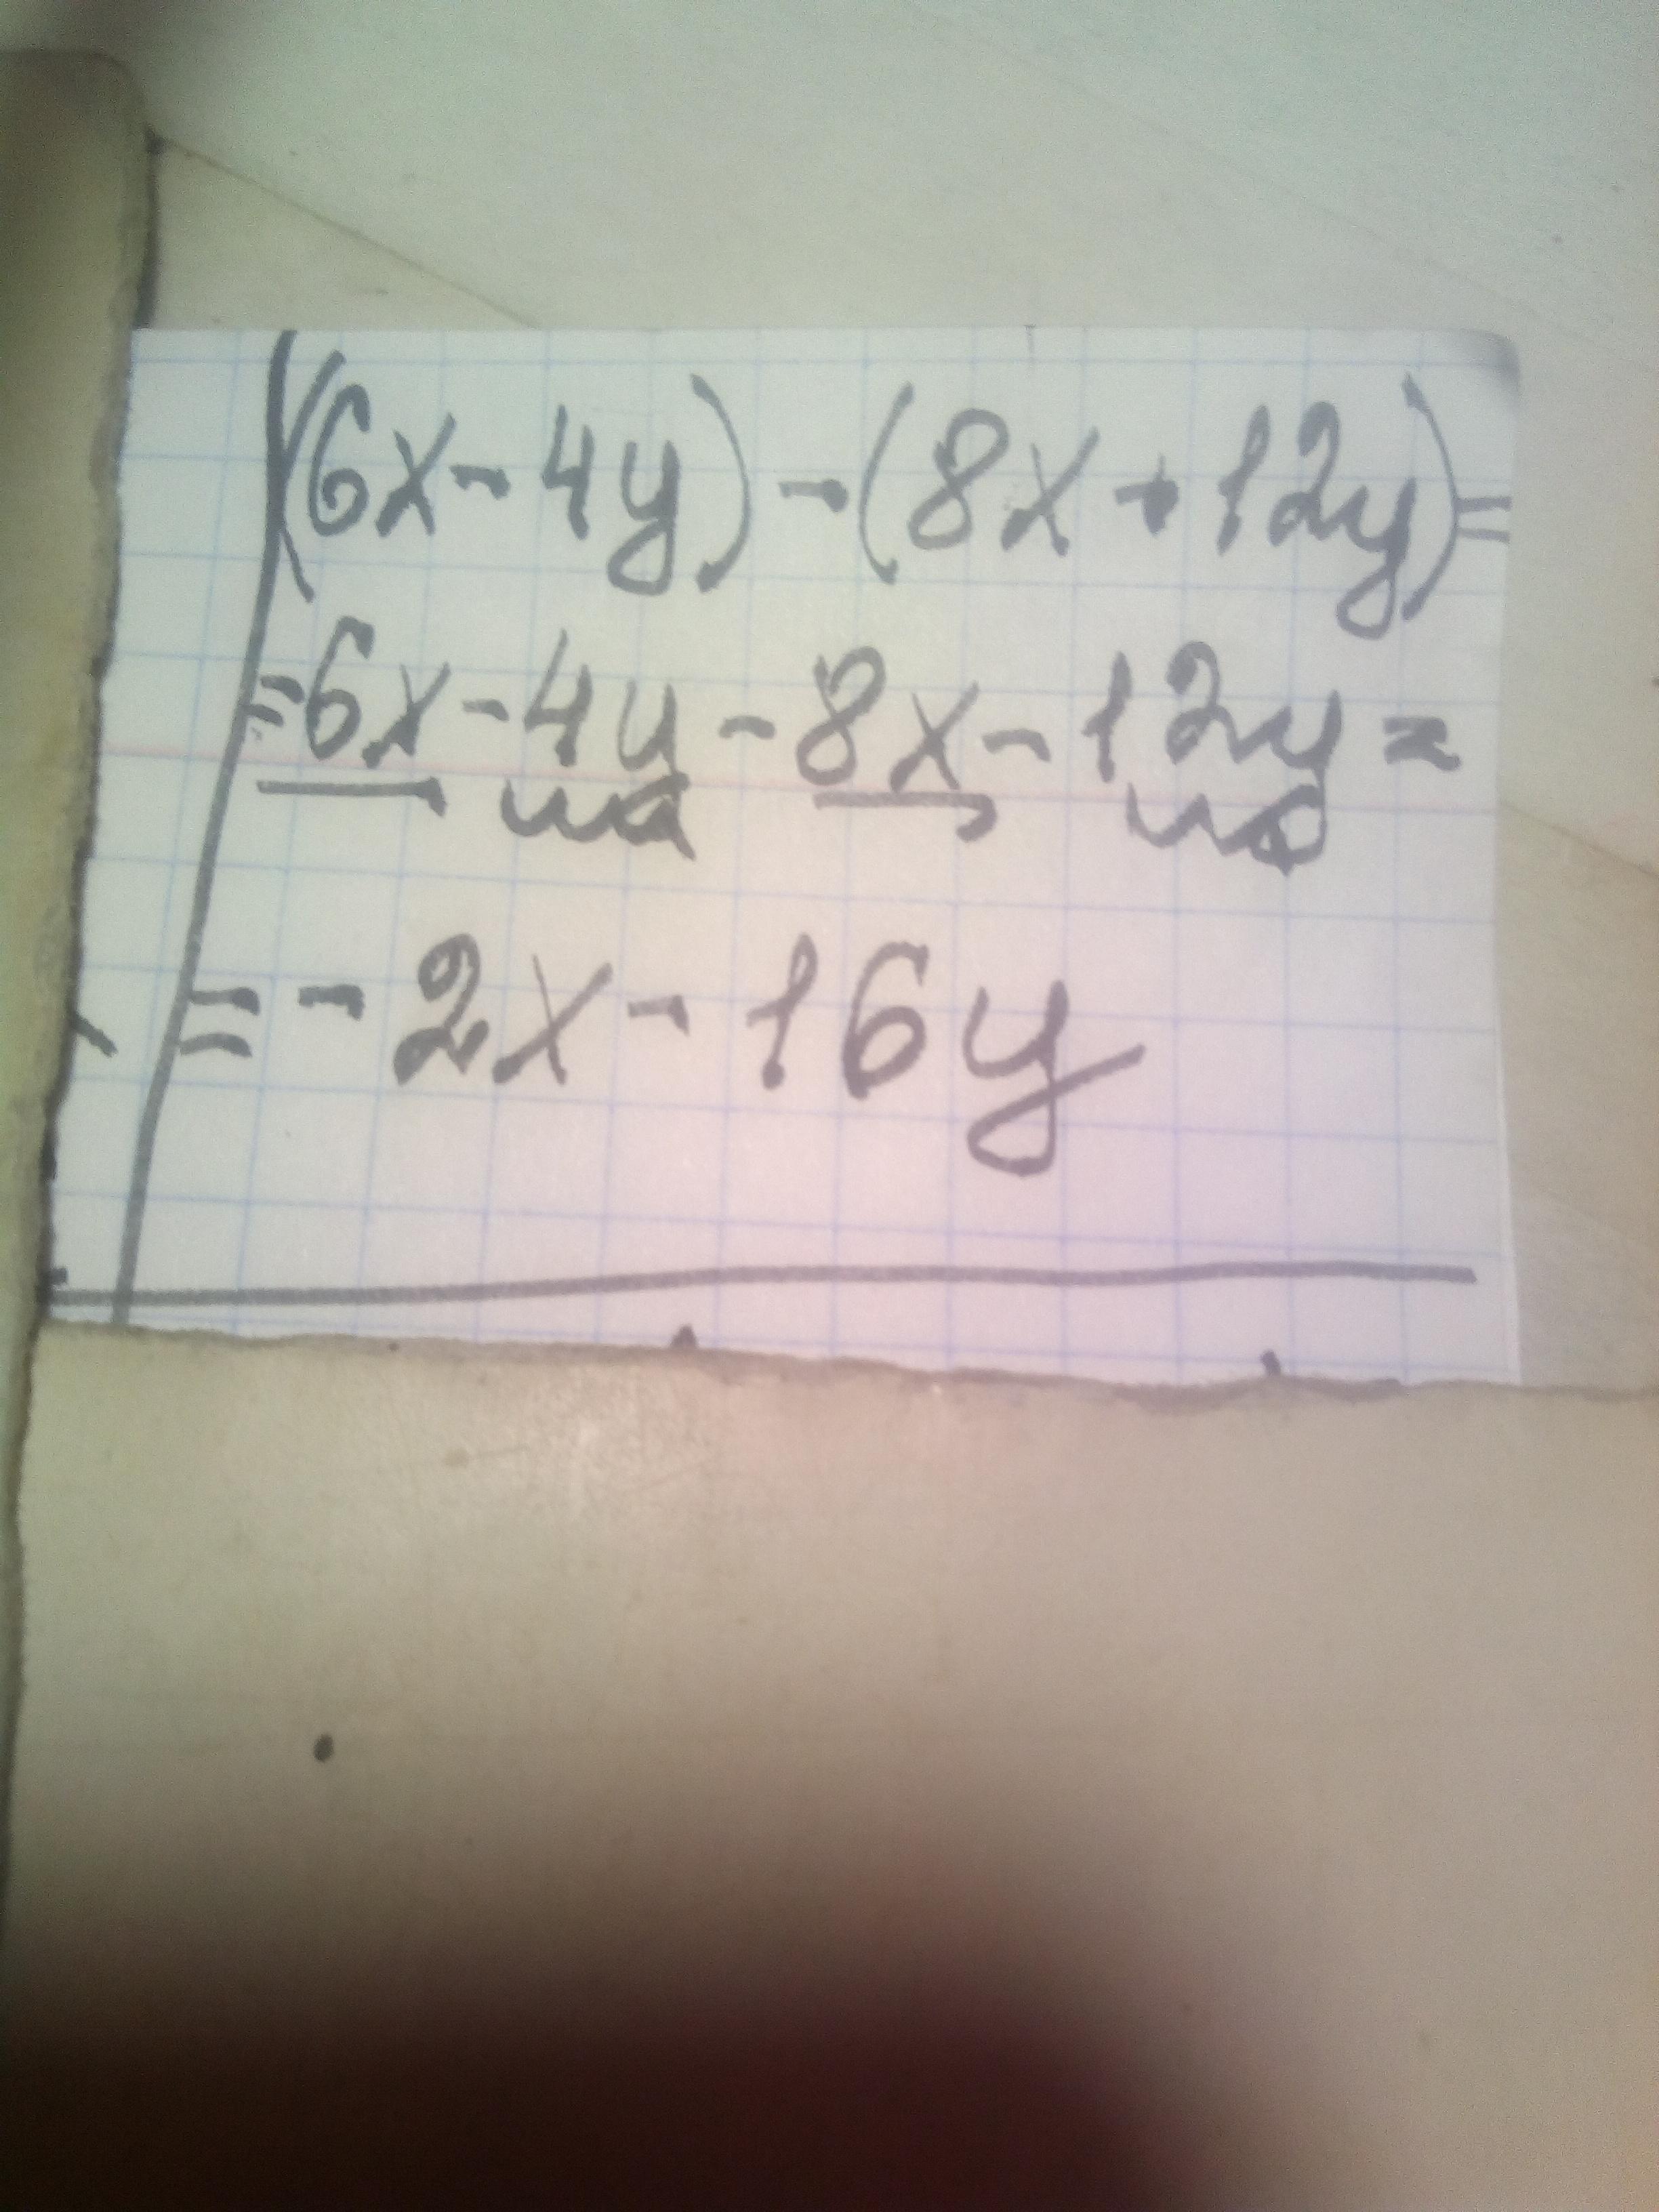 (6x-4y)-(8x+12y)=
=6x-4y-8x-12y=
=-2x-16y